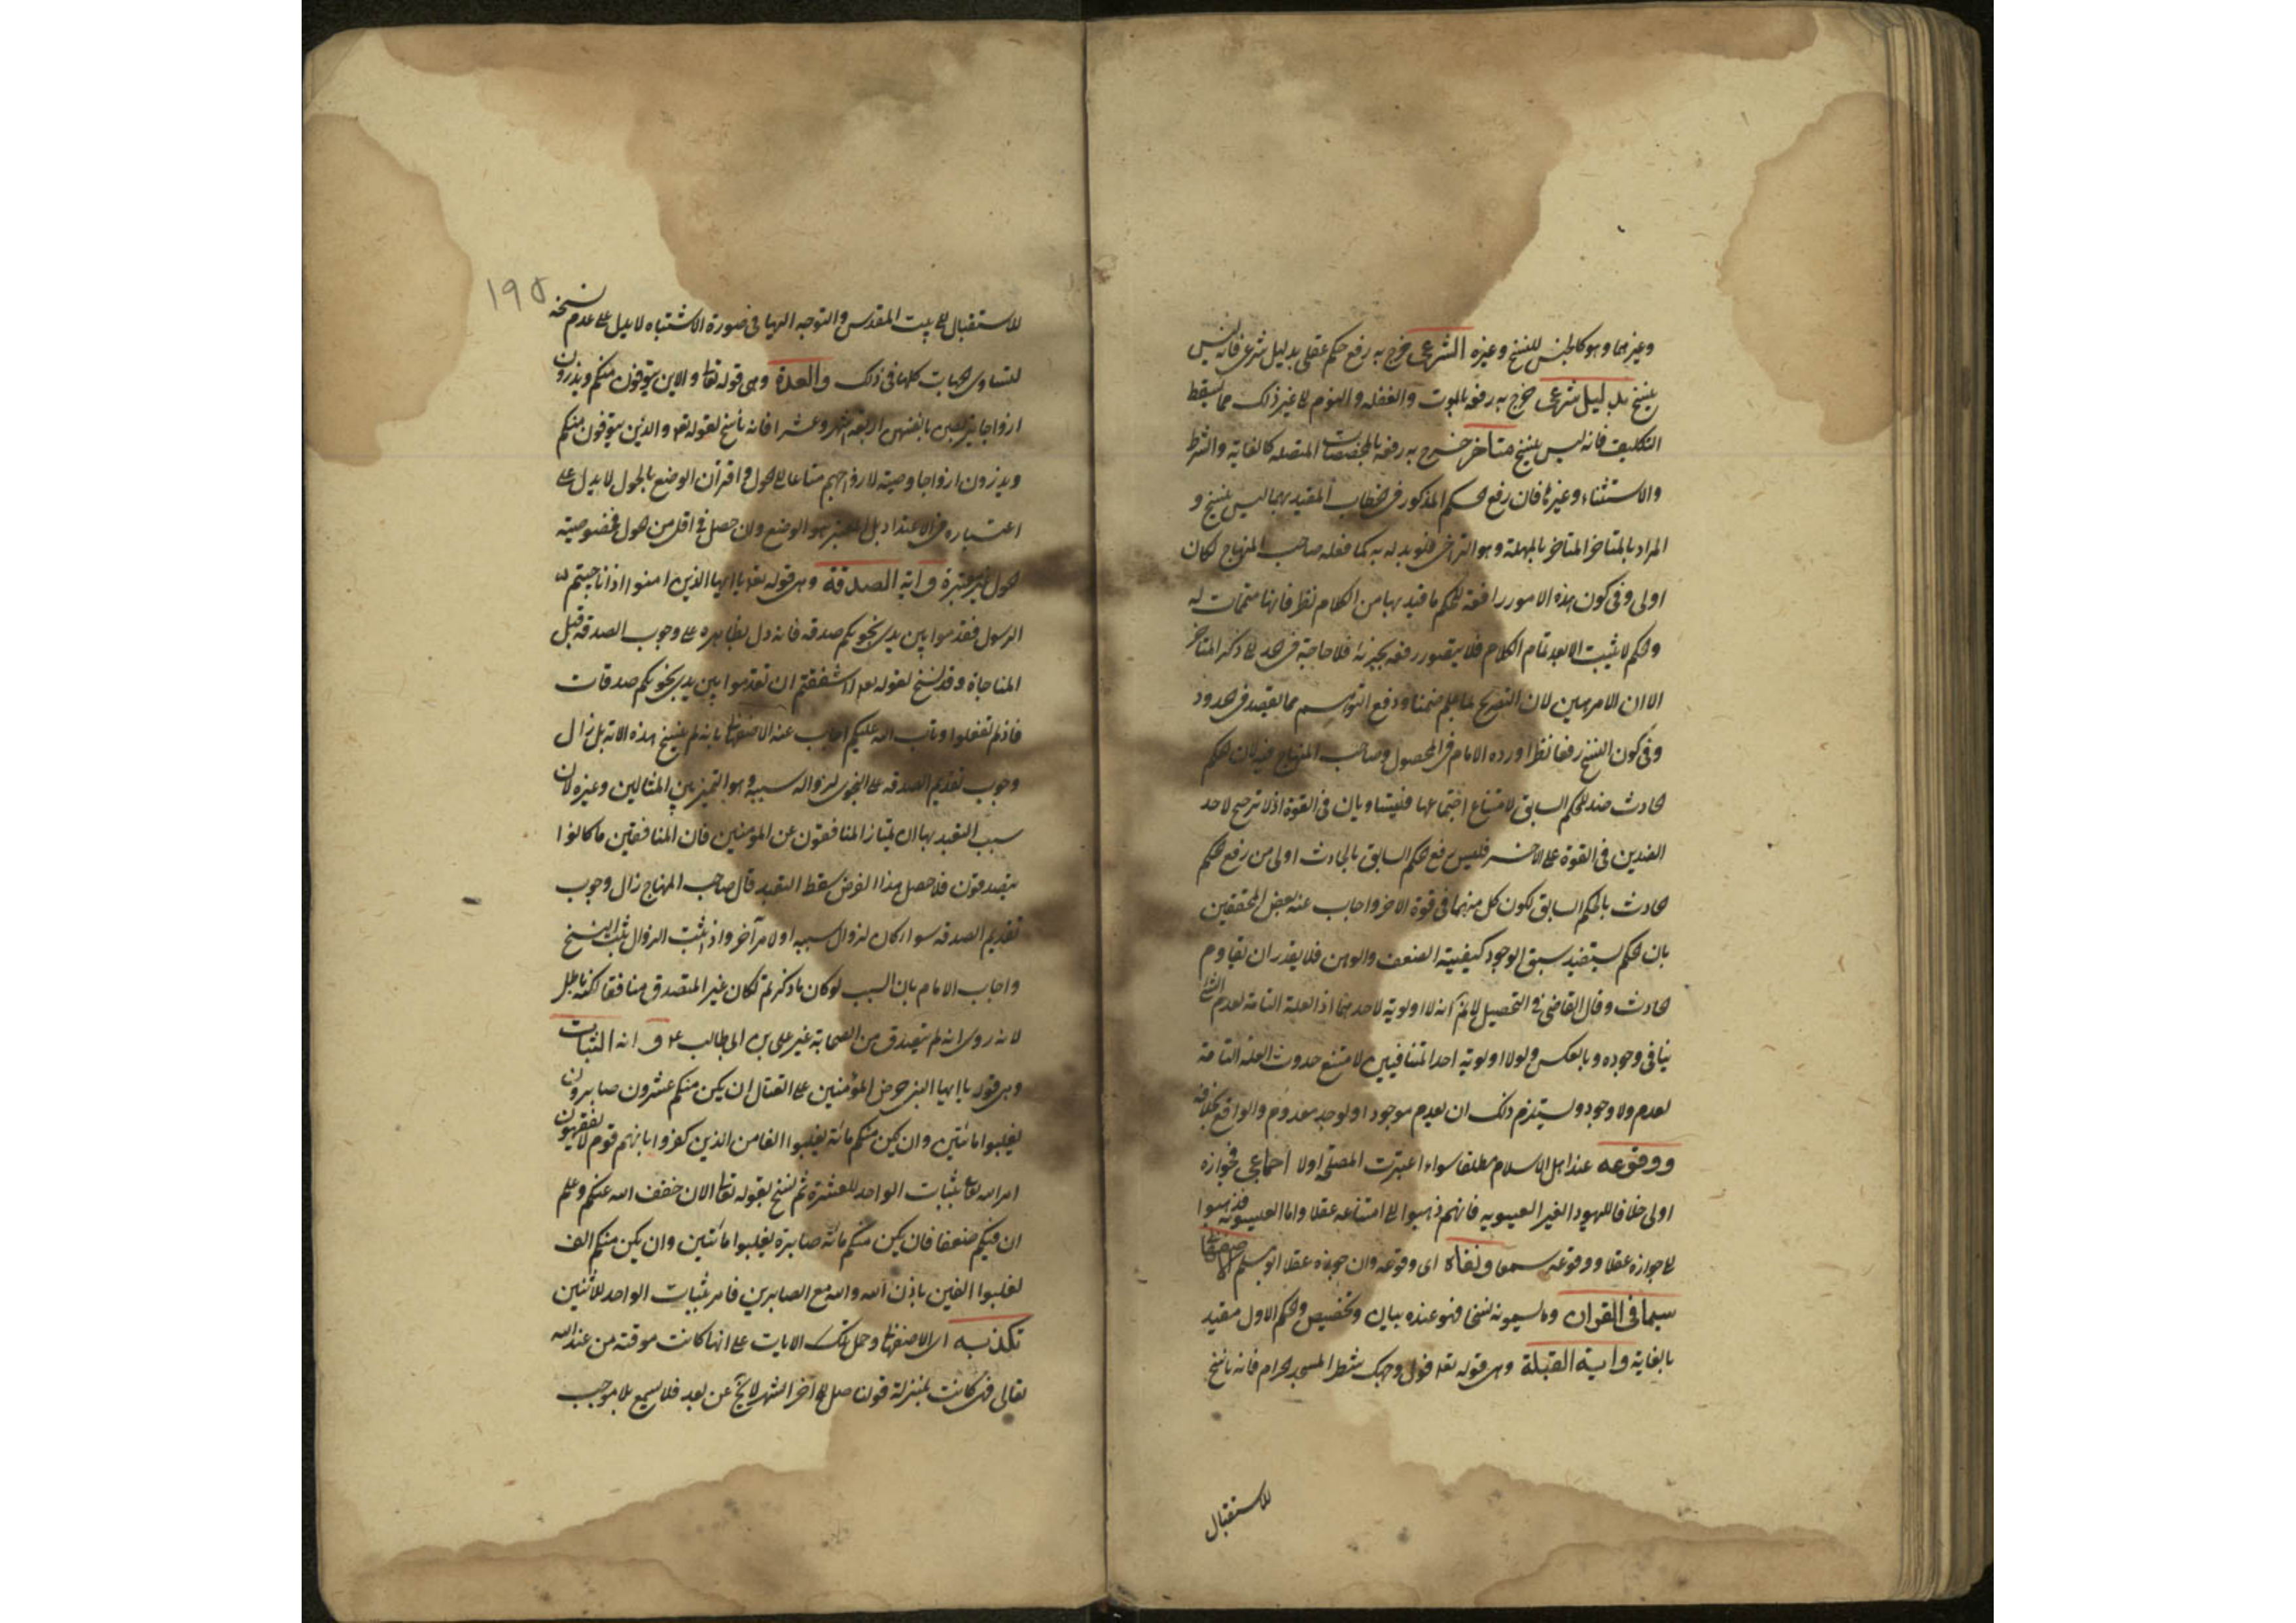 وغيرهما وهو كالجنس للنسخ وغيره الشرعى خرج به رفع حكم عقلى بدليل شرعى فانه ليس
بنسخ بدليل شرعى خرج به رفعه بالموت والغفله والنوم الى غير ذلك مما يسقط
التكليف فانه ليس بنسخ متاخر خرج به رفعه بالمخصصات المتصله كالغاية والشرط
والاستثناء وغيرها فان رفع الحكم المذكور فى الخطاب المقيد بهما ليس بنسخ و
المراد بالمتاخر المتاخر بالمهلة وهو التراخى فلو بدله به كما فعله صاحب المنهاج لكان
اولى وفى كون هذه الامور رافعة للحكم ما قيد بها من الكلام نظر فانها متممات له
والحكم لا يثبت الا بعد تمام الكلام فلا يتصور رفعه بجزئه فلا حاجة فى الحد الى ذكر المتاخر
الا ان الامر هين لان التصريح بما علم ضمنا ودفع التوهم مما يقصد فى الحدود
وفى كون النسخ رفعا نظر اورده الامام فى المحصول وصاحب المنهاج فيه لان الحكم
الحادث ضد للحكم السابق لامتناع اجتماعهما فيتساويان فى القوة اذ لا ترجيح لاحد
الضدين فى القوة على الاخر فليس رفع الحكم السابق بالحادث اولى من رفع الحكم
الحادث بالحكم السابق لكون كل منهما فى قوة الاخر واجاب عنه بعض المحققين
بان الحكم يستفيد سبق الوجود كيفية الضعف والوهن فلا يقدر ان يقاوم
الحادث وقال القاضى فى التحصيل لا نم انه لا اولوية لاحدهما اذ العلة التامة لعدم الشئ
ينافى وجوده وبالعكس ولولا اولوية احد المتنافيين لامتنع حدوث العلة التامة
لعدم ولا وجود ويستلزم ذلك ان يعدم موجود او يوجد معدوم والواقع بخلافه
ووقوعه عند اهل الاسلام مطلقا سواء اعتبرت المصلحة اولا اجماعى فجوازه
اولى خلافا لليهود الغير العيسويه فانهم ذهبوا الى امتناعه عقلا واما العيسويه فذهبوا
الى جوازه عقلا ووقوعه سمعا ونفاه اى وقوعه وان جوزه عقلا ابو مسلم الاصفهانى
سيما فى القران وما يسمونه نسخا فهو عنده بيان وتخصيص والحكم الاول مقيد
بالغاية واية القبلة وهى قوله تعا فول وجهك شطر المسجد الحرام فانه ناسخ
للاستقبال
١٩٥
للاستقبال الى بيت المقدس والتوجه اليها فى صورة الاشتباه لا يدل على عدم نسخه
لتساوى الجهات كلها فى ذلك والعدة وهى قوله تعا والذين يتوفون منكم ويذرون
ازواجا يتربصن بانفسهن اربعة اشهر وعشرا فانه ناسخ لقوله تعا والذين يتوفون منكم
ويذرون ازواجا وصية لازواجهم متاعا الى الحول واقتران الوضع بالحول لا يدل على
اعتباره فى الاعتداد بل المعتبر هو الوضع وان حصل فى اقل من الحول فخصوصية
الحول غير معتبرة واية الصدقة وهى قوله تعا يا ايها الذين امنوا اذا ناجيتم
الرسول فقدموا بين يدى نجويكم صدقه فانه دل بظاهره على وجوب الصدقه قبل
المناجاة وقد نسخ لقوله تعا ءاشفقتم ان تقدموا بين يدى نجويكم صدقات
فاذ لم تفعلوا وتاب الله عليكم اجاب عنه الاصفهانى بانه لم ينسخ هذه الاية بل زال
وجوب تقديم الصدقه على النجوى لزوال سببه وهو التميز بين المنافقين وغيره لان
سبب التعبد بها ان يمتاز المنافقون عن المؤمنين فان المنافقين ما كانوا
يتصدقون فلما حصل هذا الغرض سقط التعبد قال صاحب المنهاج زال وجوب
تقديم الصدقه سواء كان لزوال سببه او لامر آخر واذا ثبت الزوال ثبت النسخ
واجاب الامام بان السبب لو كان ما ذكرتم لكان غير المتصدق منافقا لكنه باطل
لانه روى انه لم يتصدق من الصحابة غير على بن ابى طالب ع و اية الثبات
وهى قوله يا ايها النبى حرض المؤمنين على القتال ان يكن منكم عشرون صابرون
يغلبوا مائتين وان يكن منكم مائة يغلبوا الفا من الذين كفروا بانهم قوم لا يفقهون
امر الله تعا بثبات الواحد للعشرة ثم نسخ بقوله تعا الان خفف الله عنكم وعلم
ان فيكم ضعفا فان يكن منكم مائة صابرة يغلبوا مائتين وان يكن منكم الف
يغلبوا الفين باذن الله والله مع الصابرين فامر بثبات الواحد للاثنين
تكذبه اى الاصفهانى وحمل تلك الايات على انها كانت موقتة من عند الله
تعالى فكانت بمنزلة قولنا صل الى اخر الشهر عن بعد فلا يسمع بلا موجب